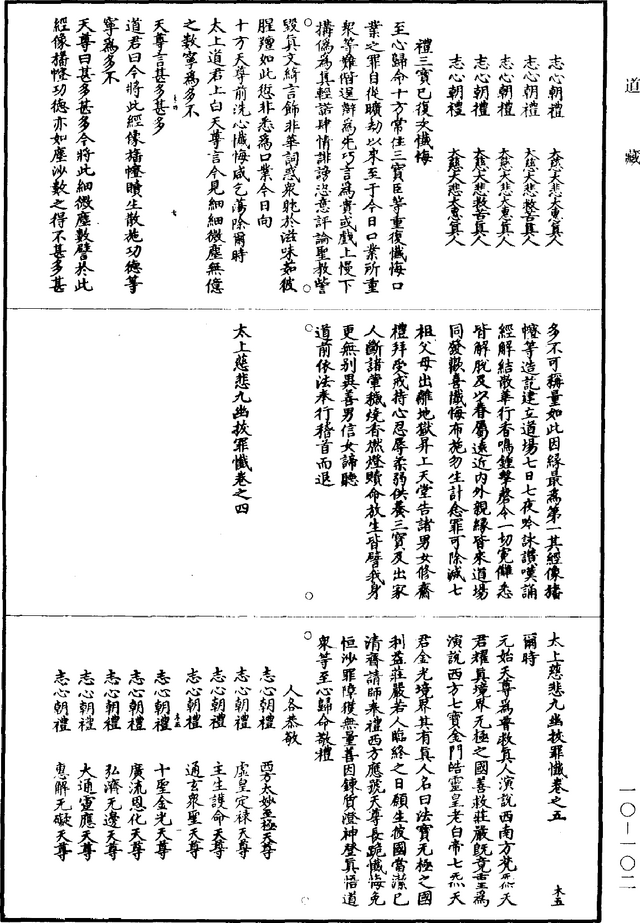 道藏
志心朝禮　大慈大悲大惠真人
志心朝禮　大慈大悲救苦真人
志心朝禮　大慈大悲大惠真人
志心朝禮　大慈大悲救苦真人
志心朝禮　大慈大悲大惠真人
禮三寶已復次懺悔
至心歸命十方常住三寶臣等重復懺悔口
業之罪自從曠劫以來至于今日口業所重
衆等難偕逞辯為先巧言為貴或戲上慢下
搆偽為真輕諾肆情誹謗恣意評論聖教訾
毀真文綺言飾非華詞惑衆躭於滋味茹彼
腥羶如此愆非悉為口業今日向
十方天尊前洗心懺悔咸乞蕩除爾時
太上道君上白天尊言今見細細微塵無億
之數寧為多不
天尊言甚多甚多
道君曰今將此經像旛幢贖生散施功德等
寧為多不
天尊曰甚多甚多今將此細微塵數譬於此
經像旛幢功德亦如塵沙數之得不甚多甚
多不可稱量如此因緣最為第一其經像旛
幢等造訖建立道場七日七夜吟詠讚嘆誦
經解結散華行香鳴鍾擊磬令一切寃讎悉
皆解脫及以眷屬遠近內外親緣皆來道場
同發歡喜懺悔布施勿生計念罪可除滅七
祖父母出離地獄昇上天堂告諸男女修齋
禮拜受戒持心忍辱柔弱供養三寶及出家
人斷諸葷穢燒香燃燈贖命放生皆譬我身
更無別異善男信女諦聽
道前依法奉行稽首而退
太上慈悲九幽拔罪懺卷之四
太上慈悲九幽拔罪懺卷之五　木五
爾時
元始天尊為普救真人演說西南方梵炁天
君耀真境界无極之國善救莊嚴既竟重為
演說西方七寶金門皓靈皇老白帝七炁天
君金光境界其有真人名曰法寶无極之國
利益莊嚴若人臨終之日願生彼國當潔已
清齋請師奉禮西方應號天尊長跪懺悔免
恒沙罪障獲無量善因鍊質澄神登真悟道
衆等至心歸命敬禮
人各恭敬
志心朝禮　西方太妙至極天尊
志心朝禮　虛皇定祿天尊
志心朝禮　主生護命天尊
志心朝禮　通玄衆聖天尊
志心朝禮　十聖金光天尊
志心朝禮　廣流恩化天尊
志心朝禮　弘濟无邊天尊
志心朝禮　大通靈應天尊
志心朝禮　惠解无礙天尊
一〇—一〇二